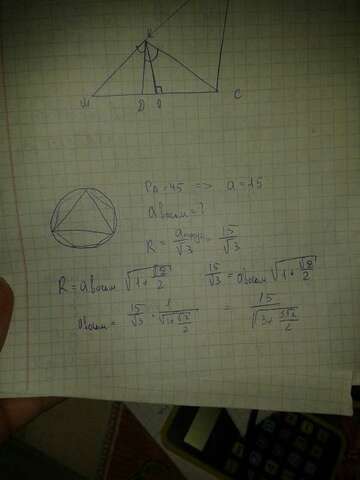 K
M D O C
P△ = 45 => a = 15
a восьм = ?
R = a треуг / √3 = 15 / √3
R = a восьм √(1 + √2 / 2) 15 / √3 = a восьм √(1 + √2 / 2)
a восьм = 15 / √3 · 1 / √(1 + √2 / 2) = 15 / √(3 + 3√2 / 2)